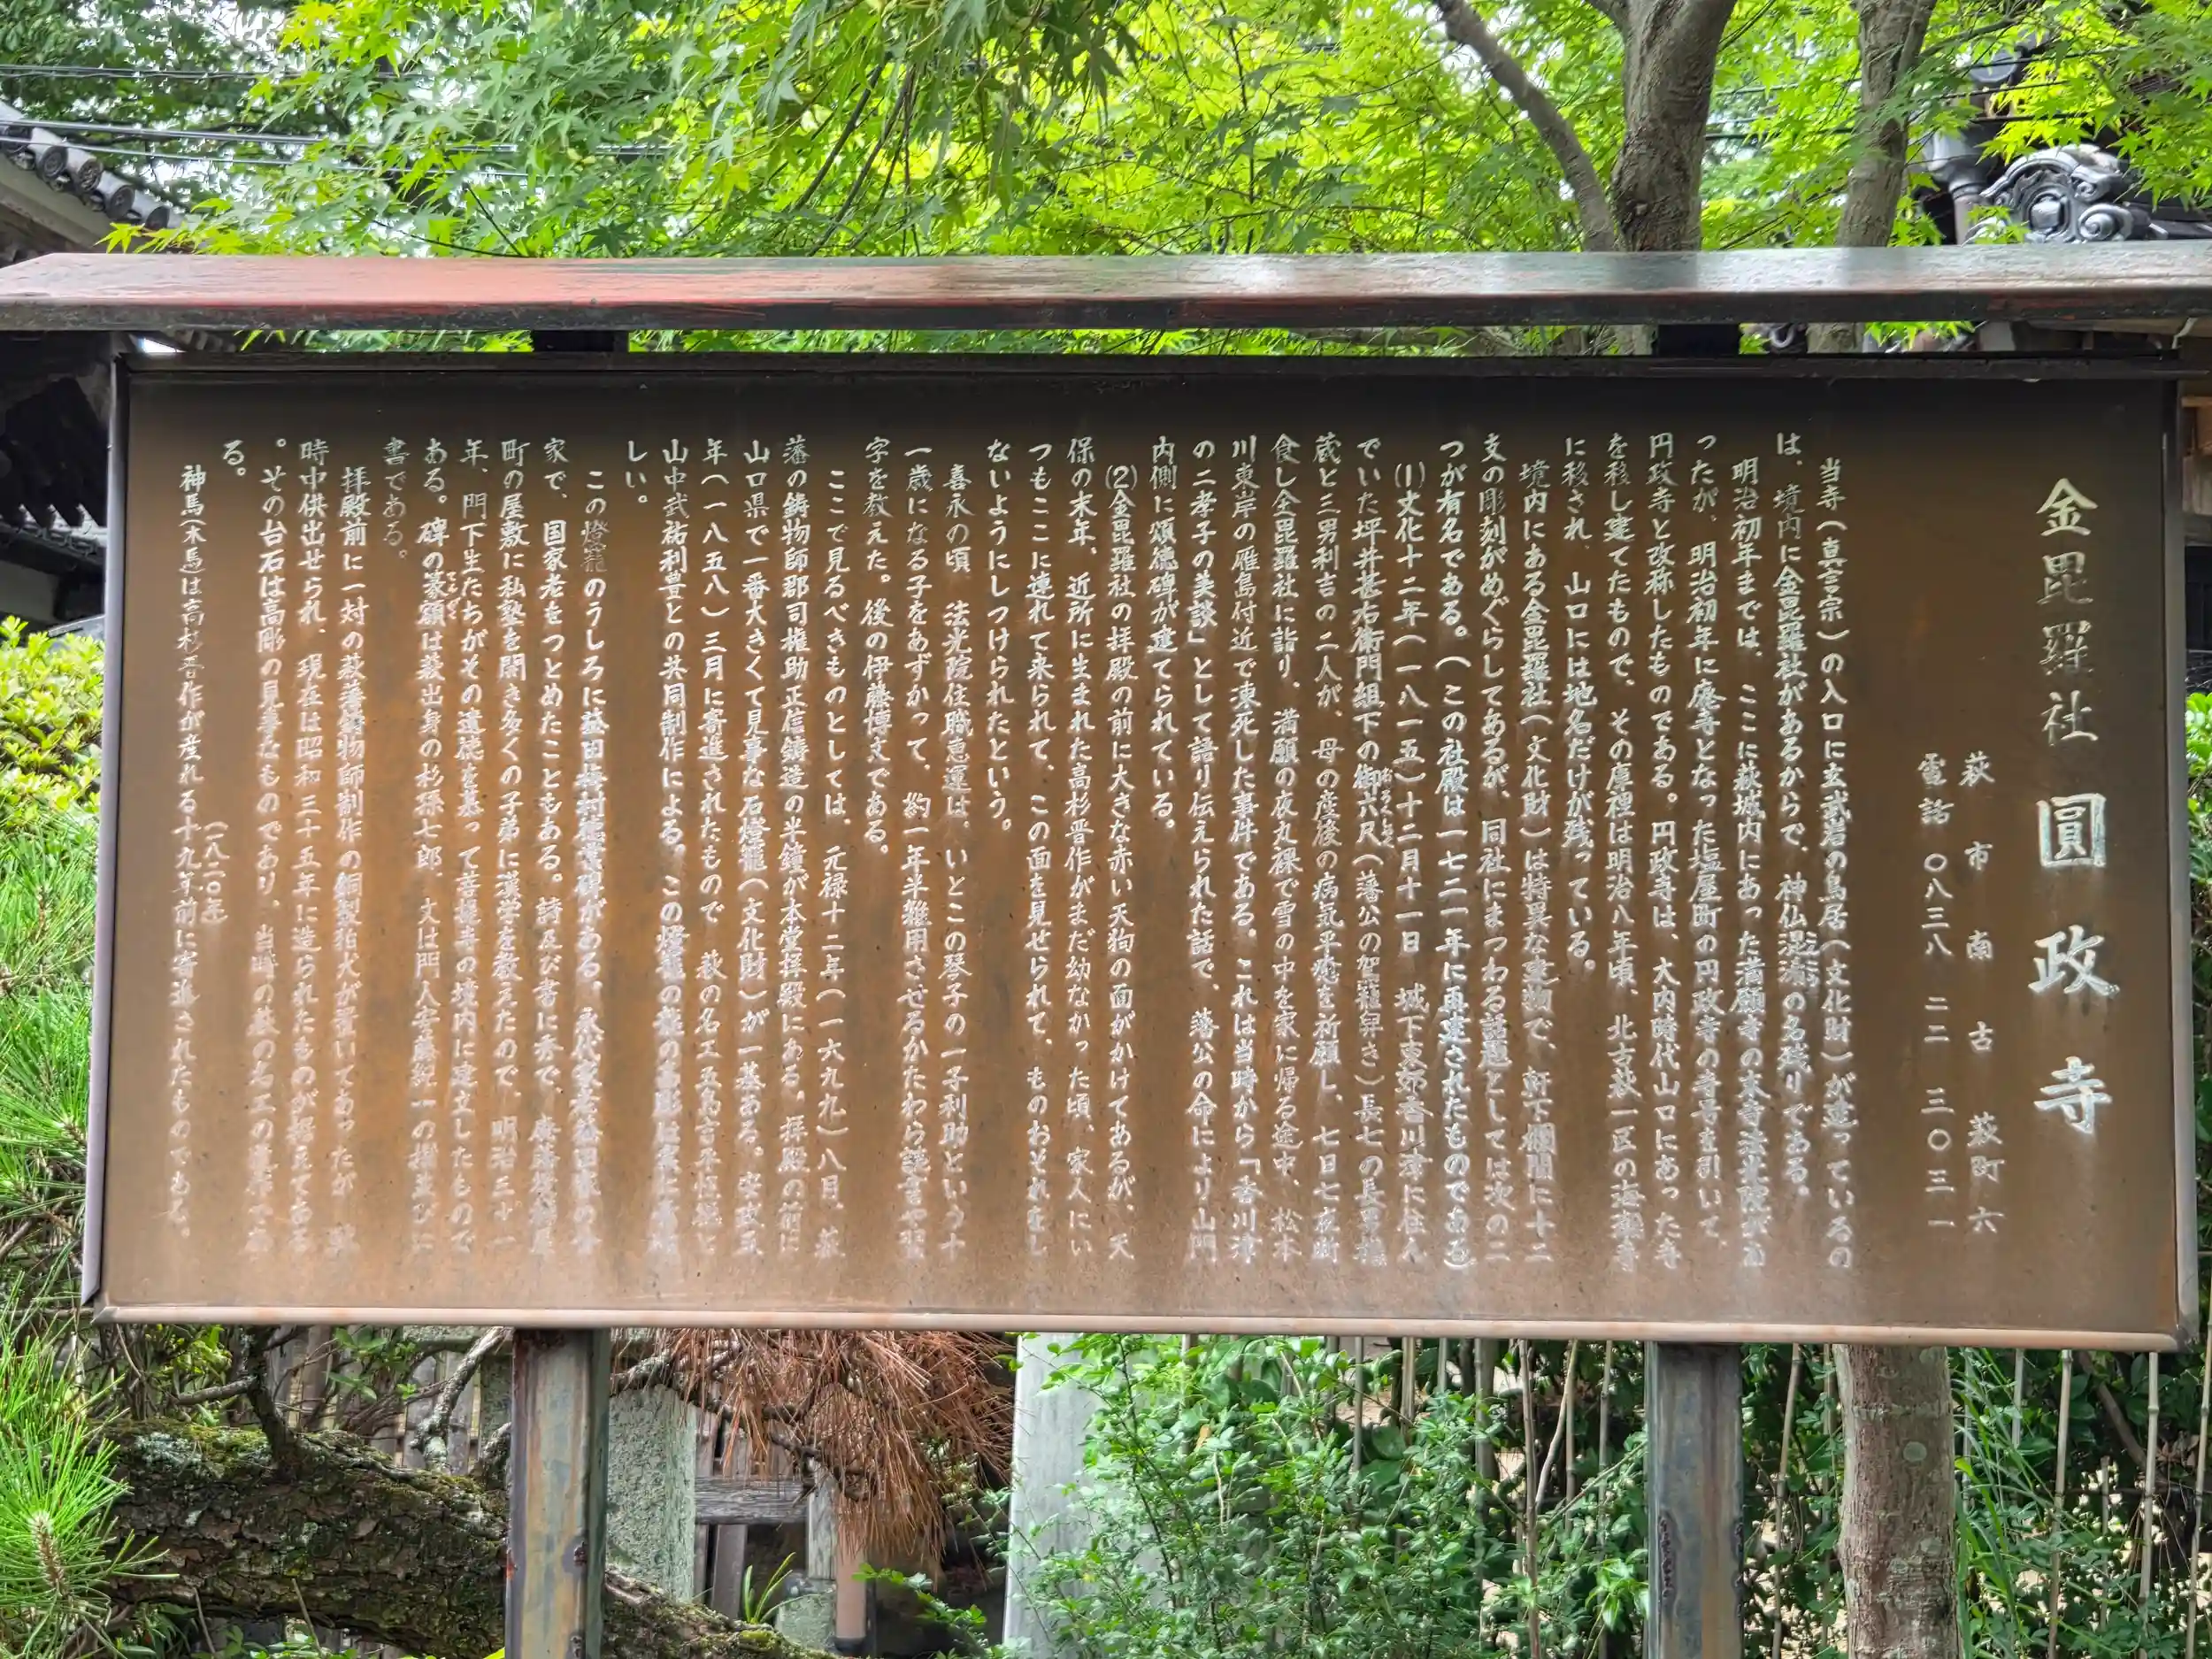 金毘羅社 圓政寺
萩市南古萩町六
電話 〇八三八 二二 三〇三一
当寺(真言宗)の入口に玄武岩の鳥居(文化財)が建っているの
は、境内に金毘羅社があるからで、神仏混淆の名残りである。
明治初年までは、ここに萩城内にあった満願寺の末寺法光院があ
ったが、明治初年に廃寺となった塩屋町の円政寺の寺号を引いて、
円政寺と改称したものである。円政寺は、大内時代山口にあった寺
を移し建てたもので、その庫裡は明治八年頃、北古萩一区の海潮寺
に移され、山口には地名だけが残っている。
境内にある金毘羅社(文化財)は特異な建物で、軒下欄間に十二
支の彫刻がめぐらしてあるが、同社にまつわる話題としては次の二
つが有名である。(この社殿は一七二一年に再建されたものである)
(1)文化十二年(一八一五)十二月十一日 城下東郊香川津に住ん
でいた坪井甚右衛門組下の御六尺(藩公の駕籠舁き)長七の長男
蔵と三男利吉の二人が、母の産後の病気平癒を祈願し、七日七夜断
食し金毘羅社に詣り、満願の夜丸裸で雪の中を家に帰る途中、松本
川東岸の雁島付近で凍死した事件である。これは当時から「香川津
の二孝子の美談」として語り伝えられた話で、藩公の命により山門
内側に頌徳碑が建てられている。
(2)金毘羅社の拝殿の前に大きな赤い天狗の面がかけてあるが、天
保の末年、近所に生まれた高杉晋作がまだ幼なかった頃、家人にい
つもここに連れて来られて、この面を見せられて、ものおそれをし
ないようにしつけられたという。
嘉永の頃、法光院住職恵運は、いとこの琴子の一子利助という十
一歳になる子をあずかって、約一年半雑用させるかたわら読書や習
字を教えた。後の伊藤博文である。
ここで見るべきものとしては、元禄十二年(一六九九)八月、萩
藩の鋳物師郡司権助正信鋳造の半鐘が本堂拝殿にある。拝殿の前に
山口県で一番大きくて見事な石燈籠(文化財)が一基ある。安政五
年(一八五八)三月に寄進されたもので 萩の名工五島吉平
山中武祐利豊との共同制作による。この燈籠の龍の
しい。
この燈籠のうしろに益田梅村徳業碑がある。永代家老益田家の
家で、国家老をつとめたこともある。詩及び書に秀で、
町の屋敷に私塾を開き多くの子弟に漢学を教えたので、明治三十一
年、門下生たちがその遺徳を慕って菩提寺の境内に建立したもので
ある。碑の篆額は萩出身の杉孫七郎、文は門人安藤紀一の
書である。
拝殿前に一対の萩藩鋳物師制作の銅製狛犬が置いてあったが、
時中供出せられ、現在は昭和三十五年に造られたものが据えてある
。その台石は高彫の見事なものであり、当時の萩の名工の
る。
神馬(木馬)は高杉晋作が産れる十九年前に寄進されたものである。
(一八二〇年)